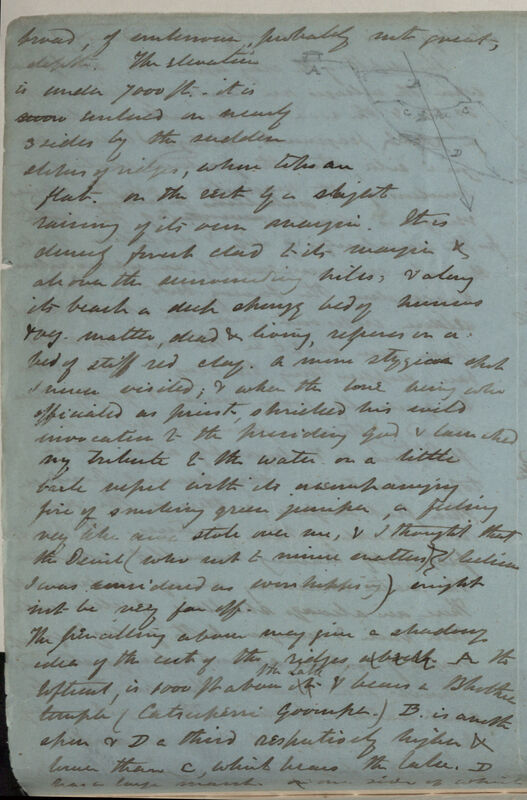 broad, of unknown, probably not great,
depth. The elevation
is under 7000 ft. it is
enclosed on nearly
3 sides by the sudden
of ridges, where
flat. on the rest by a slight
raising of its own margin. It is
densely forest clad to its margin &
all over the surrounding hills; & along
its beach a deep spongy bed of humus
& veg. matter, dead & living, reposes on a
bed of stiff red clay. A more stygian spot
I never visited; & when the lone being who
officiated as priest, shrieked his wild
invocation to the presiding God & launched
my tribute to the water on a little
bark vessel with its accompanying
fire of smoking green juniper, a feeling
very like awe stole over me, & I thought that
the Devil (who not to mince matters, I believe
I was considered as worshipping) might
not be very far off.
The pencilling above may give a shadowy
idea of the cut of the ridges, A the
loftiest, is 1000 ft above the Lake & bears a Bhothea
temple (Catsuperri Goompa.) B. is another
spur & D a third respectively higher &
lower than C, which bears the lake. D
has a large marsh on one side of which
A
B
C
C
D